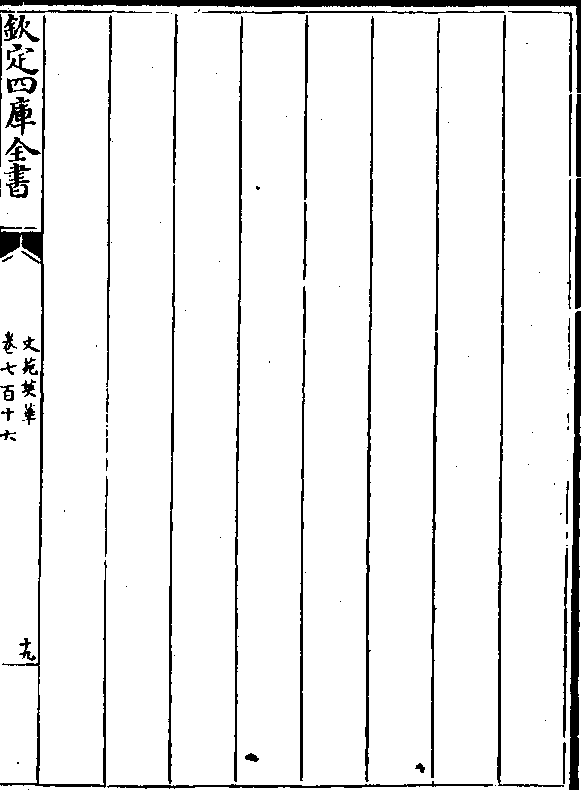 欽定四庫全書
文苑英華
卷七百十六
十九